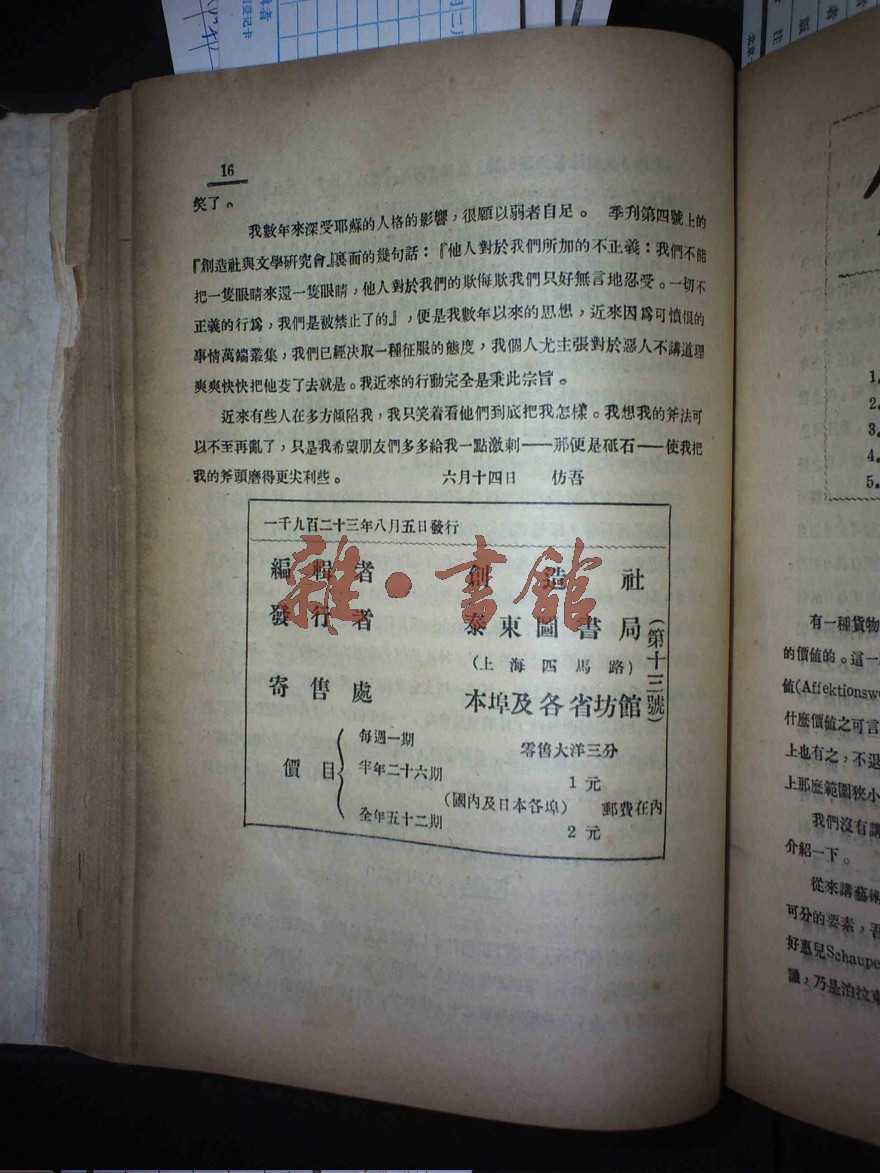 16
笑了。
我數年來深受耶蘇的人格的影響，很願以弱者自足。 季刊第四號上的
『創造社與文學研究會』裏面的幾句話：『他人對於我們所加的不正義：我們不能
把一隻眼睛來還一隻眼睛，他人對於我們的欺侮欺我們只好無言地忍受。一切不
正義的行爲，我們是被禁止了的』，便是我數年以來的思想，近來因爲可憤恨的
事情萬端叢集，我們已經決取一種征服的態度，我個人尤主張對於惡人不講道理
爽爽快快把他芟了去就是。我近來的行動完全是秉此宗旨。
近來有些人在多方傾陷我，我只笑着看他們到底把我怎樣。我想我的斧法可
以不至再亂了，只是我希望朋友們多多給我一點激刺——那便是砥石——使我把
我的斧頭磨得更尖利些。 六月十四日 仿吾
一千九百二十三年八月五日發行
編輯者 創造社
發行者 泰東圖書局
(上海四馬路)
寄售處 本埠及各省坊館
(第十三號)
價目
每週一期 零售大洋三分
半年二十六期 1 元
(國內及日本各埠) 郵費在內
全年五十二期 2 元
雜·書館
1.
2.
3.
4.
5.
有一種貨物
的價值的。這一
值(Affektionswe
什麼價值之可言
上也有之，不退
上那麽範圍狹小
我們沒有講
介紹一下。
從來講藝術
可分的要素，吾
好惠兒Schaupe
識，乃是泊拉東